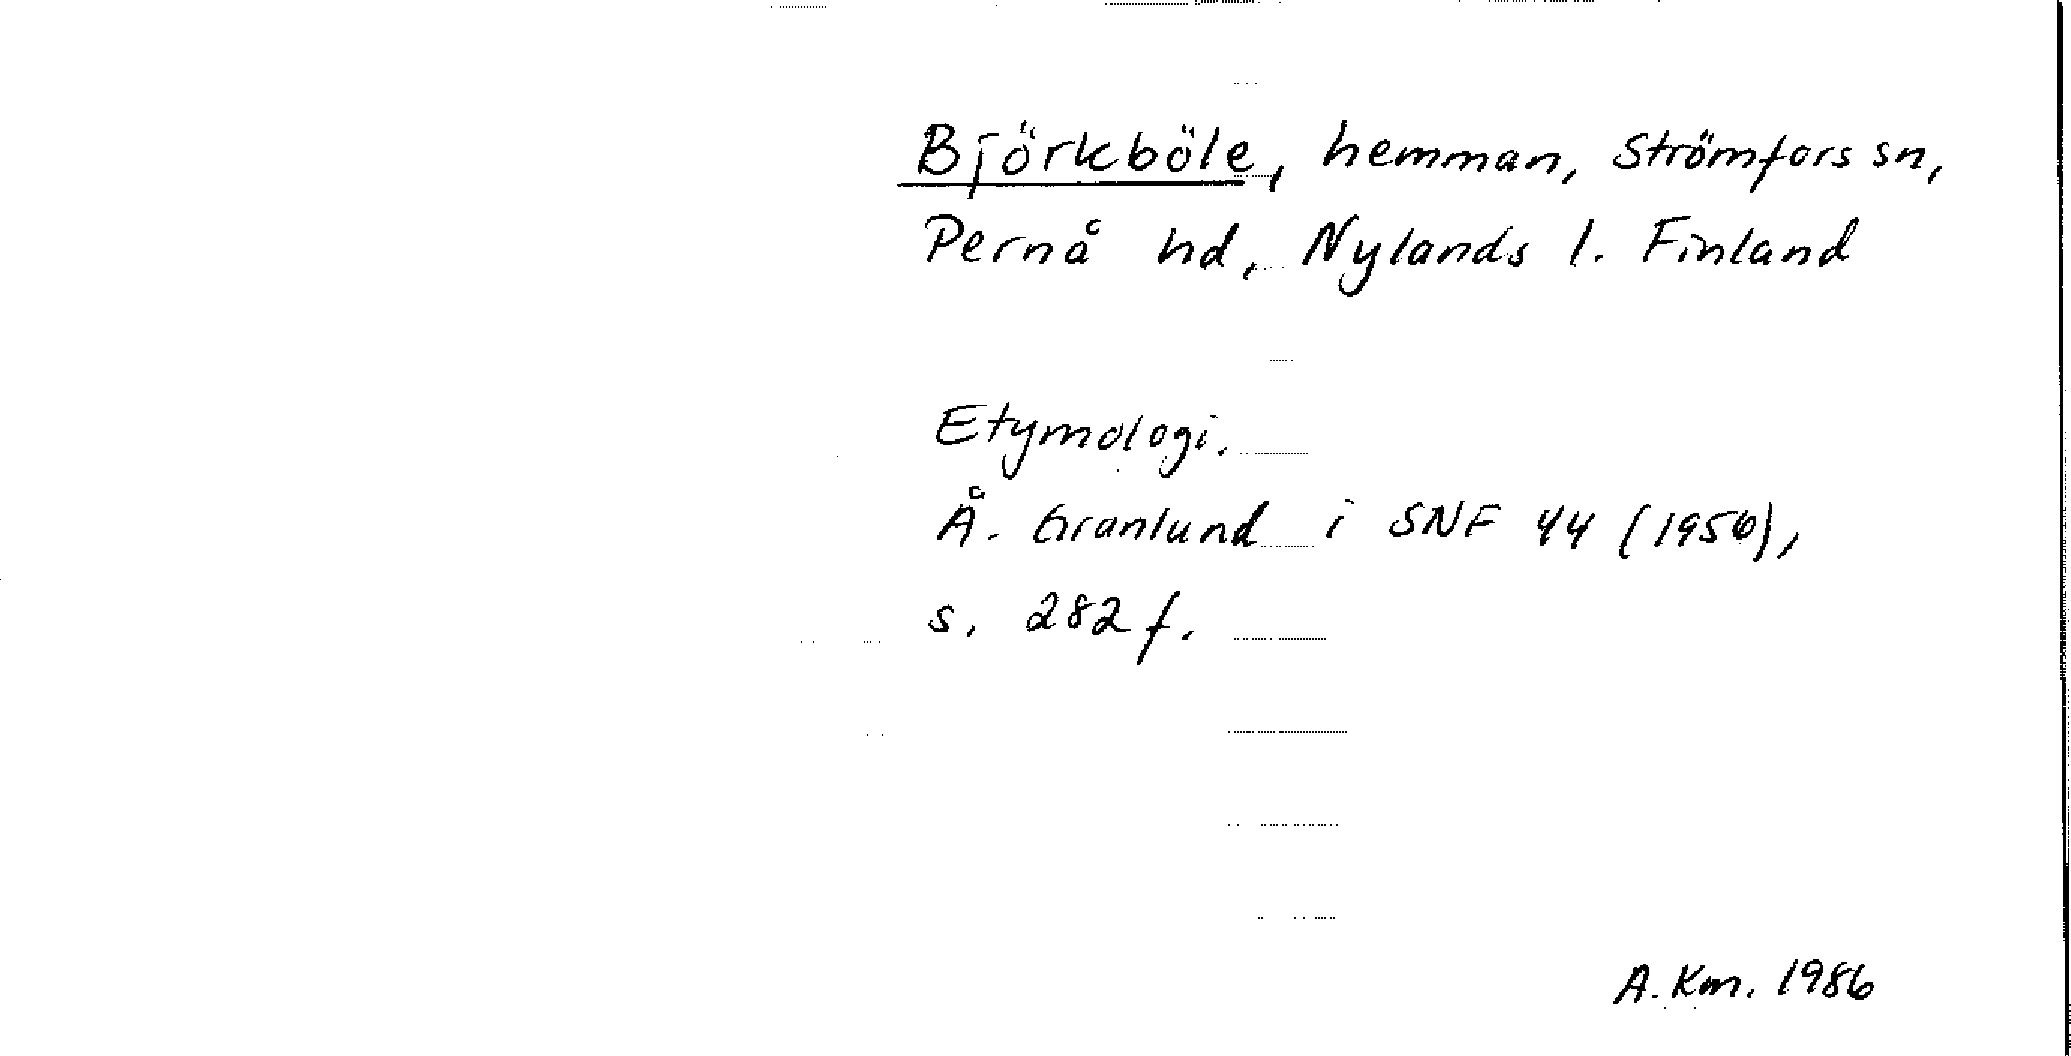 Björkböle, hemman, Strömfors sn,
Pernå hd, Nylands l. Finland
Etymologi.
Å. Granlund i SNF 44 (1956),
s. 282 f.
A. Km. 1986